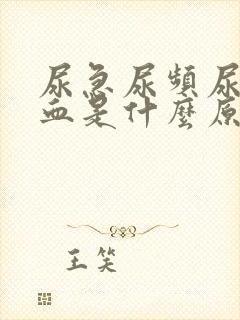 尿急尿頻尿
血是什麼原
王笑